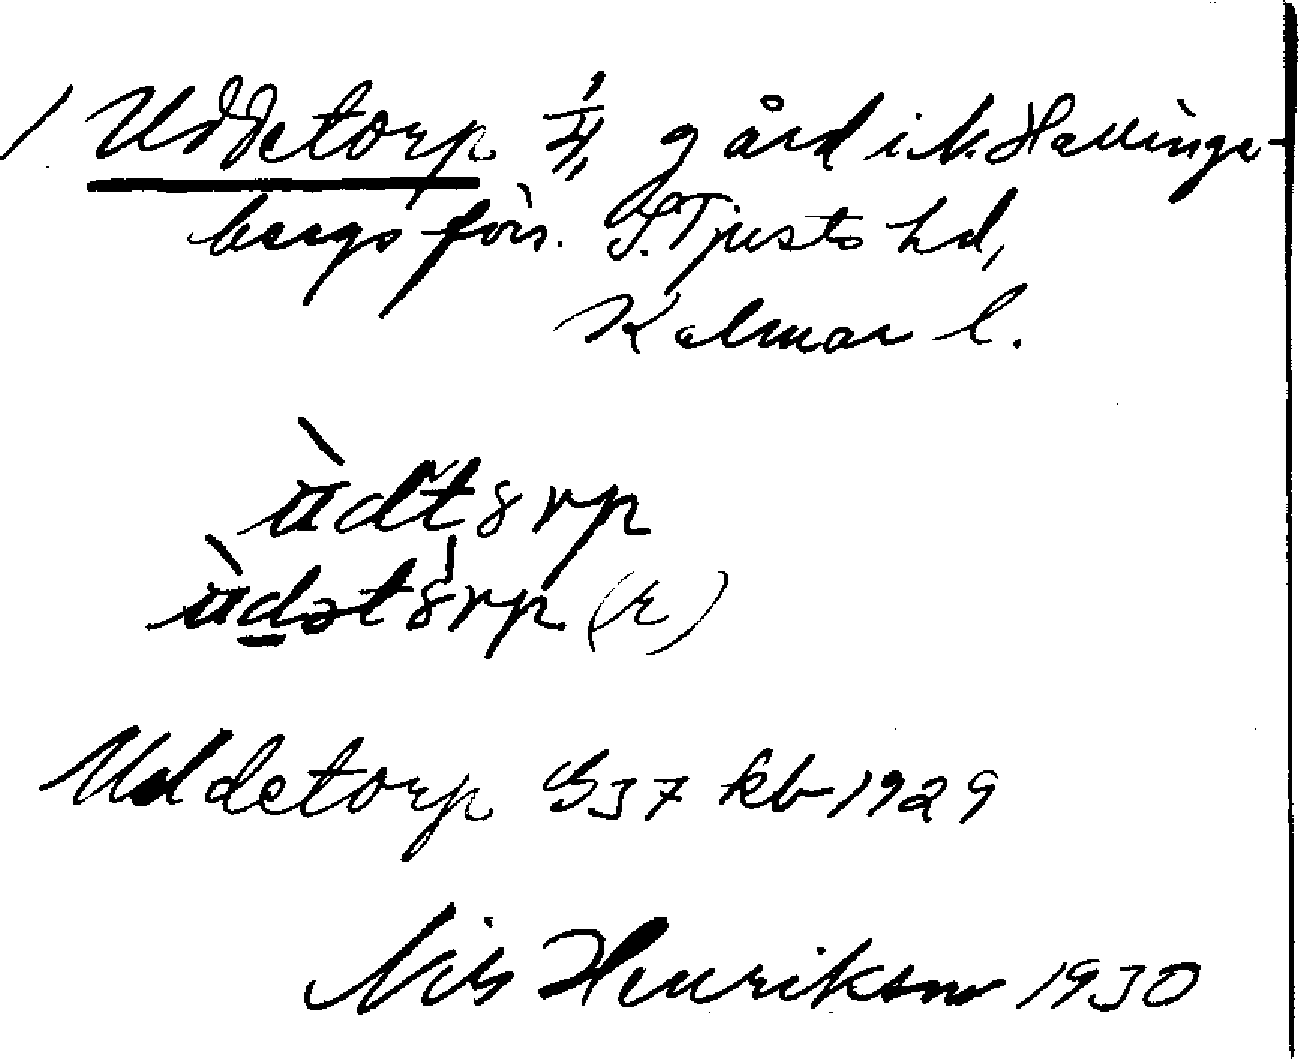 1 Uddetorp 1/4 gård i V. Hallinge-
bergs förs. S. Tjusts hd,
Kalmar l.
ùdtȣrp
ùdətȣrp (r)
Uddetorp GJ7 kb 1929
Nils Henrikson 1930